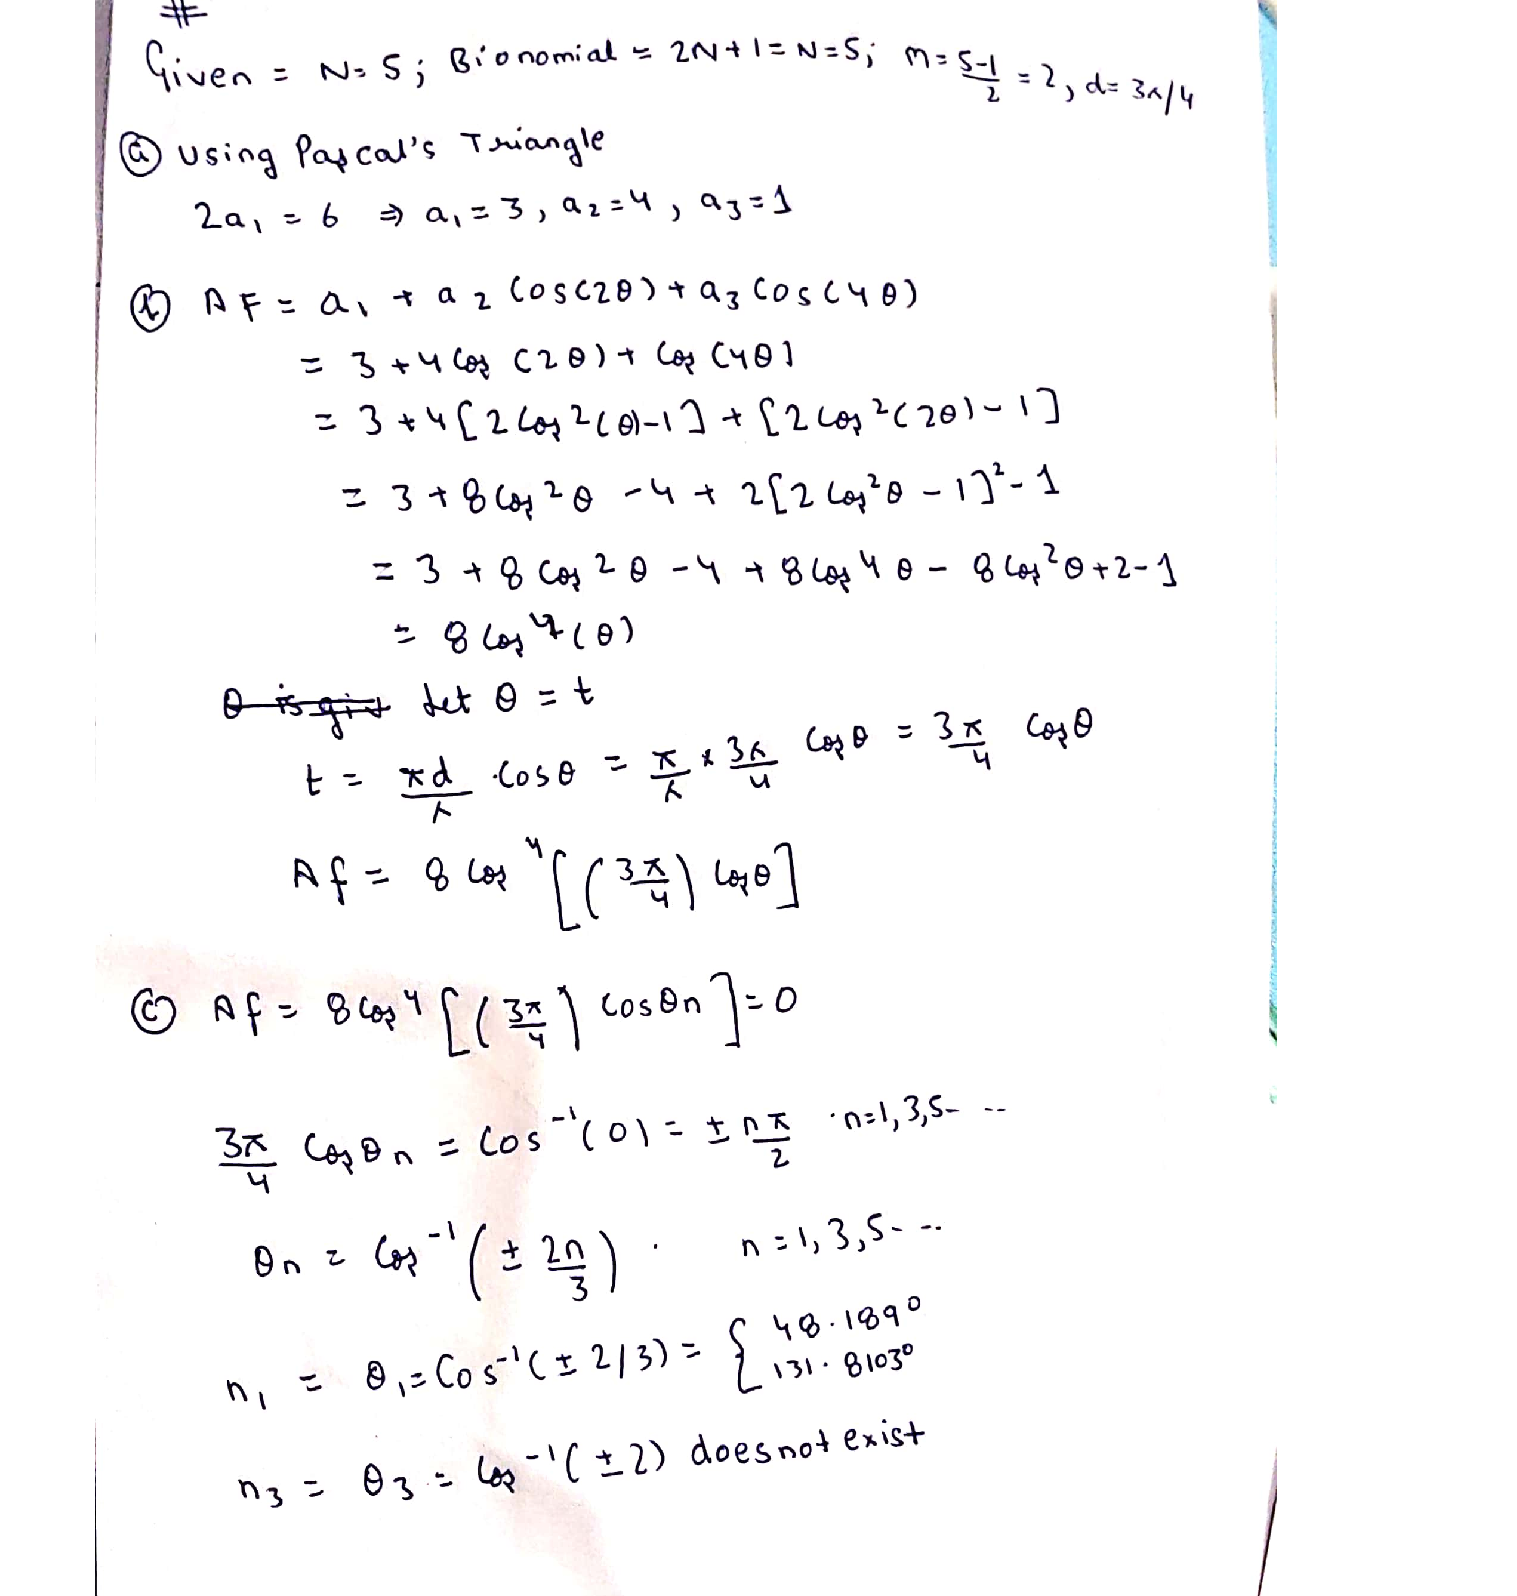 #
Given = N=5; Bionomial = 2N+1=N=5; M=5-1/2 =2, d= 3λ/4
ⓐ Using Pascal's Triangle
2a₁ = 6 ⇒ a₁=3, a₂=4, a₃=1
ⓑ AF = a₁ + a₂ Cos(2θ)+a₃ Cos(4θ)
= 3+4 Cos (2θ)+ Cos (4θ]
= 3+4[2 Cos²(θ)-1]+[2 Cos²(2θ)-1]
= 3+8 Cos²θ -4+ 2[2 Cos²θ -1]²-1
= 3 + 8 Cos²θ -4 +8 Cos⁴θ - 8 Cos²θ+2-1
= 8 Cos⁴(θ)
Let θ = t
t = πd/λ .Cosθ = π/λ × 3λ/4 Cosθ = 3π/4 Cosθ
Af = 8 Cos⁴[(3π/4) Cosθ]
ⓒ Af = 8 Cos⁴[(3π/4) Cosθn]=0
3π/4 Cosθn = Cos⁻¹(0)= ± nπ/2 .n=1,3,5- --
θn = Cos⁻¹(± 2n/3) . n=1,3,5- --
n₁ = θ₁=Cos⁻¹(± 2/3)= { 48.189°
131.8103°
n₃ = θ₃ = Cos⁻¹(±2) does not exist